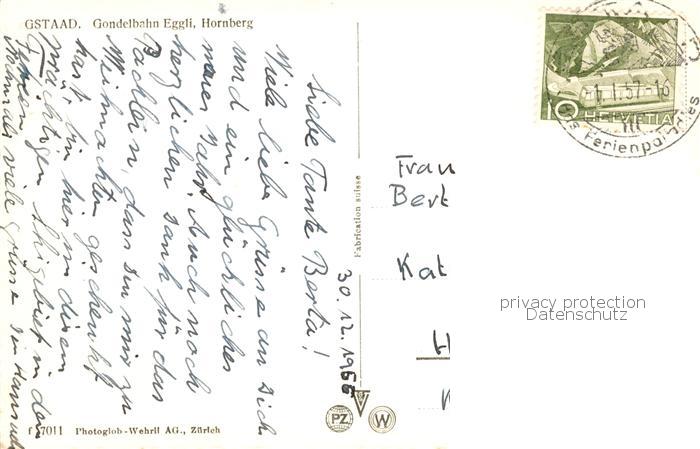 GSTAAD. Gondelbahn Eggli, Hornberg
Liebe Tante Berta!
Viele liebe Grüsse an Dich
und ein glückliches
neues Jahr. Auch noch
herzlichen Dank für das
Päcklein, dass Du mir zu
Weihnachten geschenkt
hast. Bin hier in diesem
mächtigen Skigebiet in den
Ferien
Nochmals viele Grüsse
30.12.1956
Fabrication suisse
Frau
Bert
Kat
H
10 HELVETIA
1.1.57-16
Ferienparadies
privacy protection
Datenschutz
PZ W
f 7011 Photoglob-Wehrli AG., Zürich